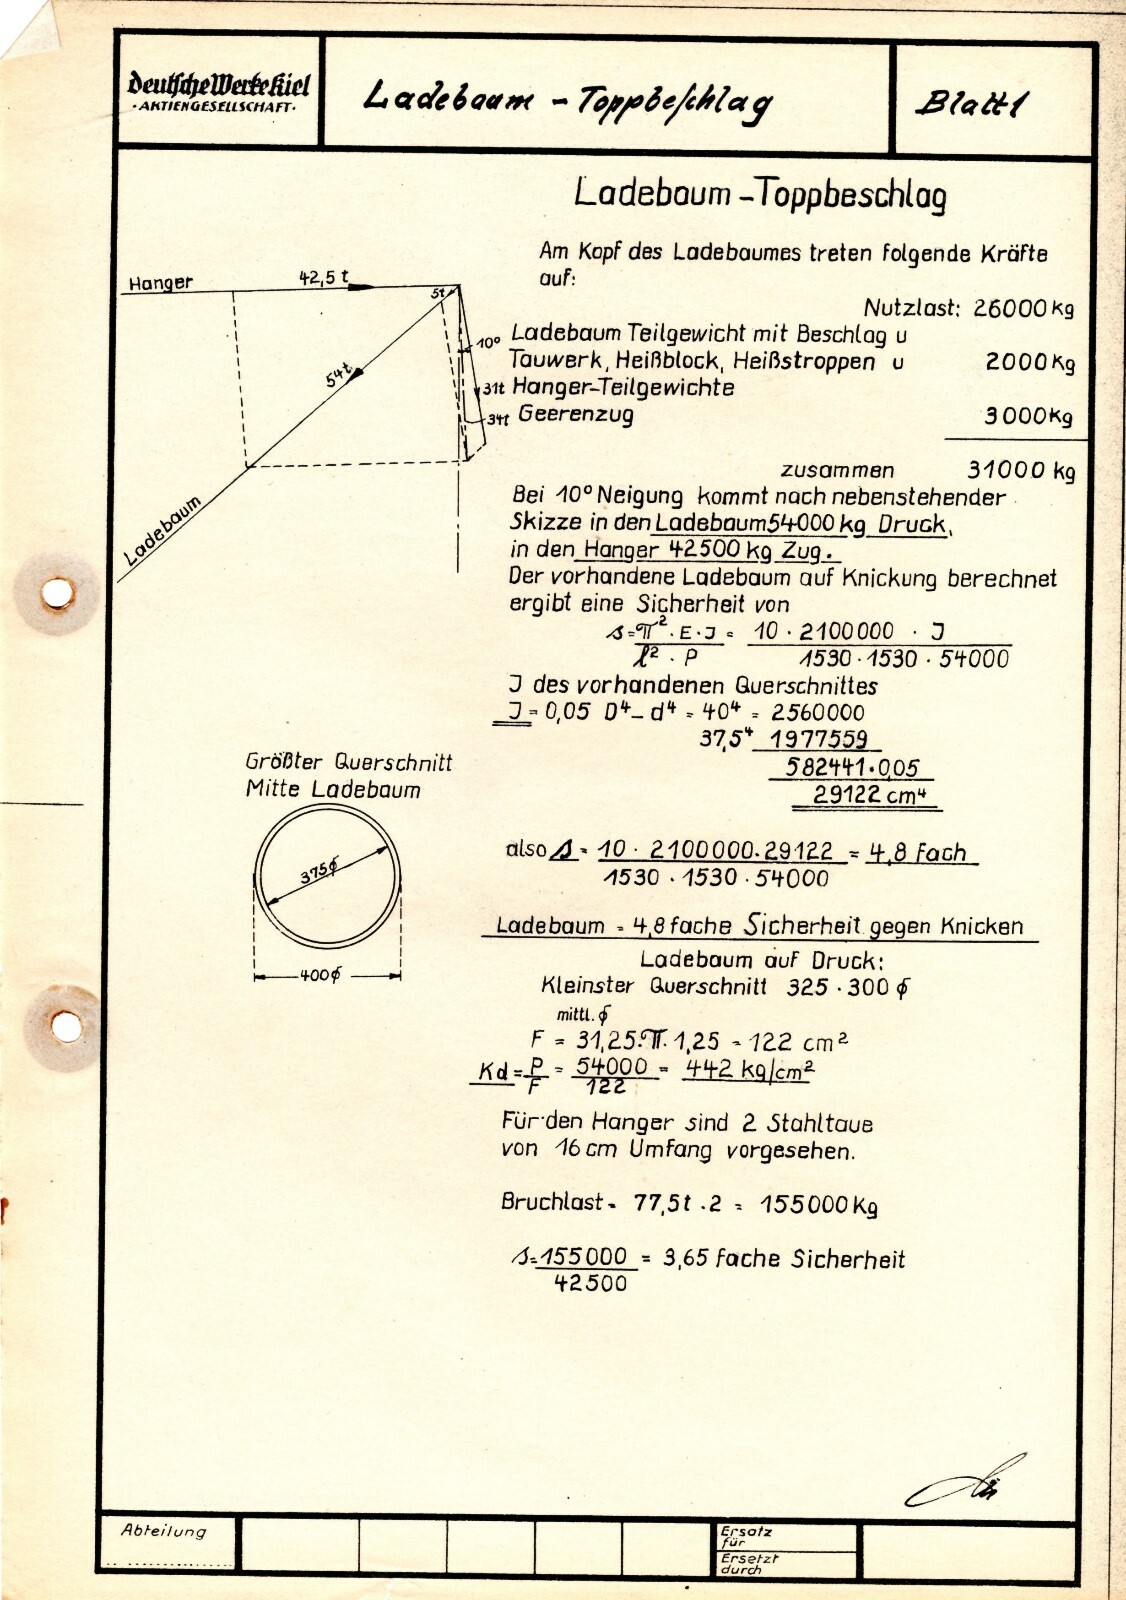 Deutsche Werke Kiel
· AKTIENGESELLSCHAFT ·
Ladebaum - Toppbeschlag
Blatt 1
Ladebaum - Toppbeschlag
Am Kopf des Ladebaumes treten folgende Kräfte
auf:
Nutzlast: 26000 kg
Ladebaum Teilgewicht mit Beschlag u
Tauwerk, Heißblock, Heißstroppen u 2000 kg
Hanger-Teilgewichte
Geerenzug 3000 kg
zusammen 31000 kg
Hanger
42,5 t
5t
10°
54t
31t
34t
Ladebaum
Bei 10° Neigung kommt nach nebenstehender
Skizze in den Ladebaum 54000 kg Druck,
in den Hanger 42500 kg Zug.
Der vorhandene Ladebaum auf Knickung berechnet
ergibt eine Sicherheit von
s = π² · E · J = 10 · 2100000 · J
l² · P 1530 · 1530 · 54000
J des vorhandenen Querschnittes
J = 0,05 D⁴ - d⁴ = 40⁴ = 2560000
37,5⁴ 1977559
582441 · 0,05
29122 cm⁴
Größter Querschnitt
Mitte Ladebaum
375 ϕ
400 ϕ
also s = 10 · 2100000 · 29122 = 4,8 fach
1530 · 1530 · 54000
Ladebaum = 4,8 fache Sicherheit gegen Knicken
Ladebaum auf Druck:
Kleinster Querschnitt 325 · 300 ϕ
mittl. ϕ
F = 31,25 · π · 1,25 = 122 cm²
Kd = P = 54000 = 442 kg/cm²
F 122
Für den Hanger sind 2 Stahltaue
von 16 cm Umfang vorgesehen.
Bruchlast = 77,5t · 2 = 155000 Kg
s = 155000 = 3,65 fache Sicherheit
42500
Abteilung
Ersatz
für
Ersetzt
durch